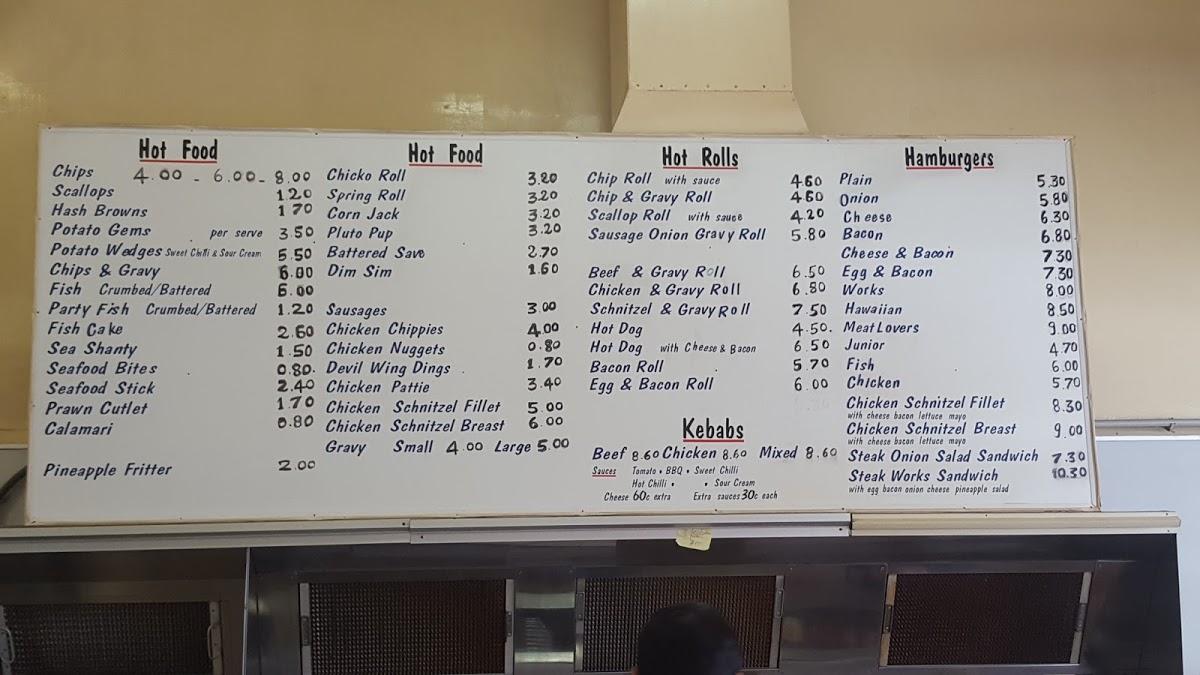 Hot Food
Chips 4.00 - 6.00 - 8.00
Scallops 1.20
Hash Browns 1.70
Potato Gems per serve 3.50
Potato Wedges Sweet Chilli & Sour Cream 5.50
Chips & Gravy 6.00
Fish Crumbed/Battered 6.00
Party Fish Crumbed/Battered 1.20
Fish Cake 2.60
Sea Shanty 1.50
Seafood Bites 0.80.
Seafood Stick 2.40
Prawn Cutlet 1.70
Calamari 0.80
Pineapple Fritter 2.00
Hot Food
Chicko Roll 3.20
Spring Roll 3.20
Corn Jack 3.20
Pluto Pup 3.20
Battered Save 2.70
Dim Sim 1.60
Sausages 3.00
Chicken Chippies 4.00
Chicken Nuggets 0.80
Devil Wing Dings 1.70
Chicken Pattie 3.40
Chicken Schnitzel Fillet 5.00
Chicken Schnitzel Breast 6.00
Gravy Small 4.00 Large 5.00
Hot Rolls
Chip Roll with sauce 4.60
Chip & Gravy Roll 4.60
Scallop Roll with sauce 4.20
Sausage Onion Gravy Roll 5.80
Beef & Gravy Roll 6.50
Chicken & Gravy Roll 6.80
Schnitzel & Gravy Roll 7.50
Hot Dog 4.50.
Hot Dog with Cheese & Bacon 6.50
Bacon Roll 5.70
Egg & Bacon Roll 6.00
Kebabs
Beef 8.60 Chicken 8.60 Mixed 8.60
Sauces Tomato • BBQ • Sweet Chilli
Hot Chilli • • Sour Cream
Cheese 60c extra Extra sauces 30c each
Hamburgers
Plain 5.30
Onion 5.80
Cheese 6.30
Bacon 6.80
Cheese & Bacon 7.30
Egg & Bacon 7.30
Works 8.00
Hawaiian 8.50
Meat Lovers 9.00
Junior 4.70
Fish 6.00
Chicken 5.70
Chicken Schnitzel Fillet 8.30
with cheese bacon lettuce mayo
Chicken Schnitzel Breast 9.00
with cheese bacon lettuce mayo
Steak Onion Salad Sandwich 7.30
Steak Works Sandwich 10.30
with egg bacon onion cheese pineapple salad